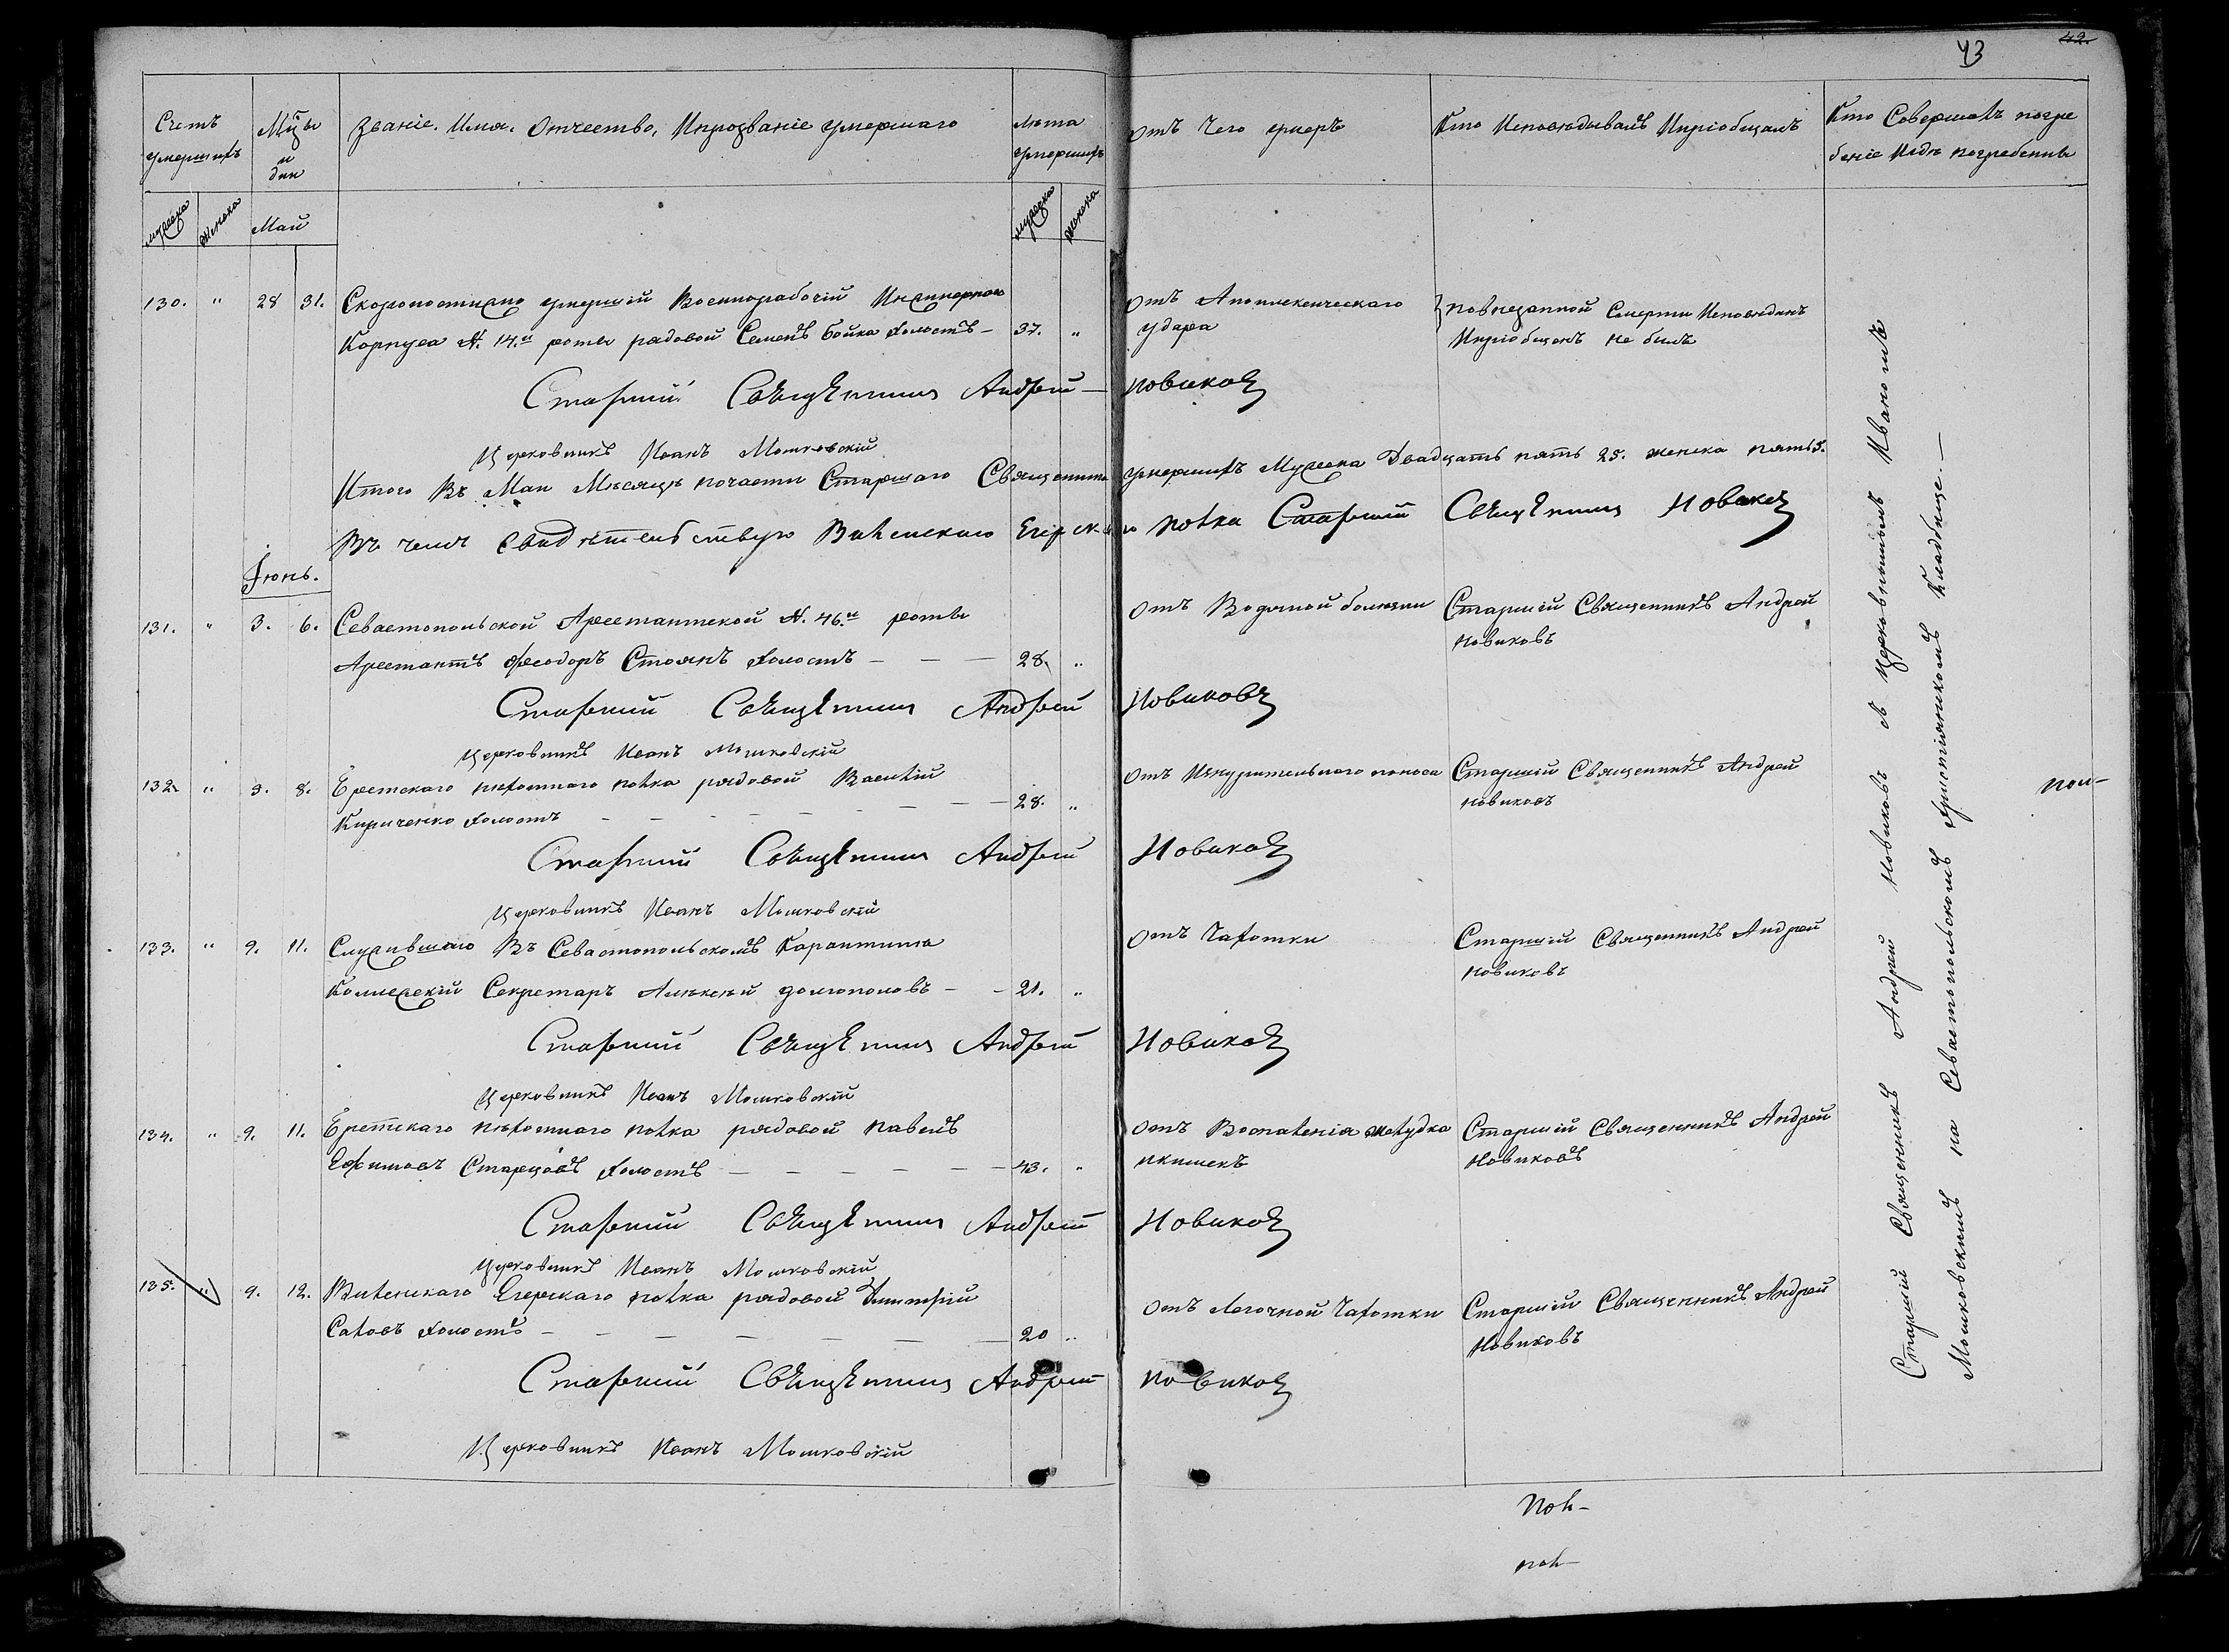 43
42.
Счетъ умершихъ
Мцы и дни
Званіе. Имя. Отчество, Ипрозваніе умершаго
Лѣта умершихъ
Отъ Чего умеръ
Кто Исповѣдывалъ Ипріобщалъ
Кто Совершалъ погре
беніе Игдѣ погребенны
мужеска
женска
Май
мужеска
женска
130. " 28 31. Скоропостижно умершій Военнорабочій Инженернаго
Корпуса №. 14.й роты рядовой Семенъ Бойко холостъ — 37. "
Отъ Апоплексическаго
удара
повнезапной Смерти Исповѣданъ
Ипріобщенъ не былъ
Старшій Священникъ Андрей — Новиковъ
Церковникъ Иванъ Мошковскій
Итого Въ Маи Мѣсяцѣ почасти Старшаго Священника умершихъ Мужеска Двадцать пять 25. женска пять 5.
Въ чемъ Свидѣтельствую Виленскаго Егерскаго полка Старшій Священникъ Новиковъ
Іюнь.
131. " 3. 6. Севастопольской Арестантской №. 46.й роты
Арестантъ Феодоръ Стоянъ холостъ — — — 28. "
Отъ Водяной болезни
Старшій Священникъ Андрей
Новиковъ
Старшій Священникъ Андрей Новиковъ
Церковникъ Иванъ Мошковскій
132. " 3. 8. Брестскаго пѣхотнаго полка рядовой Василій
Кириченко холостъ — — — — — — 28. "
Отъ Изнурительнаго поноса
Старшій Священникъ Андрей
Новиковъ
Старшій Священникъ Андрей Новиковъ
Церковникъ Иванъ Мошковскій
133. " 9. 11. Служившаго Въ Севастопольскомъ Карантинѣ
Коллежскій Секретарь Алѣксѣй Долгополовъ — — 21. "
Отъ Чахотки
Старшій Священникъ Андрей
Новиковъ
Старшій Священникъ Андрей Новиковъ
Церковникъ Иванъ Мошковскій
134. " 9. 11. Брестскаго пѣхотнаго полка рядовой Павелъ
Ефимовъ Старцовъ холостъ — — — — — — 43. "
Отъ Воспаленія желудка
икишекъ
Старшій Священникъ Андрей
Новиковъ
Старшій Священникъ Андрей Новиковъ
Церковникъ Иванъ Мошковскій
135. " 9. 12. Виленскаго Егерскаго полка рядовой Дмитрій
Саловъ холостъ — — — — — — — 20 "
Отъ Легочной Чахотки
Старшій Священникъ Андрей
Новиковъ
Старшій Священникъ Андрей Новиковъ
Церковникъ Иванъ Мошковскій
Старшій Священникъ Андрей Новиковъ с Церковникомъ Иваномъ
Мошковскимъ на Севастопольскомъ Христіянскомъ Кладбище. —
пол—
Пол—
пол—